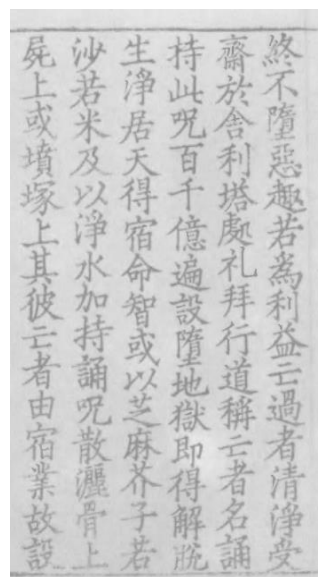 終不墮惡趣若爲利益亡過者清淨受
齋於舍利塔處礼拜行道稱亡者名誦
持此呪百千億遍設墮地獄即得解脱
生淨居天得宿命智或以芝麻芥子若
沙若米及以淨水加持誦呪散灑骨上
屍上或墳塚上其彼亡者由宿業故設